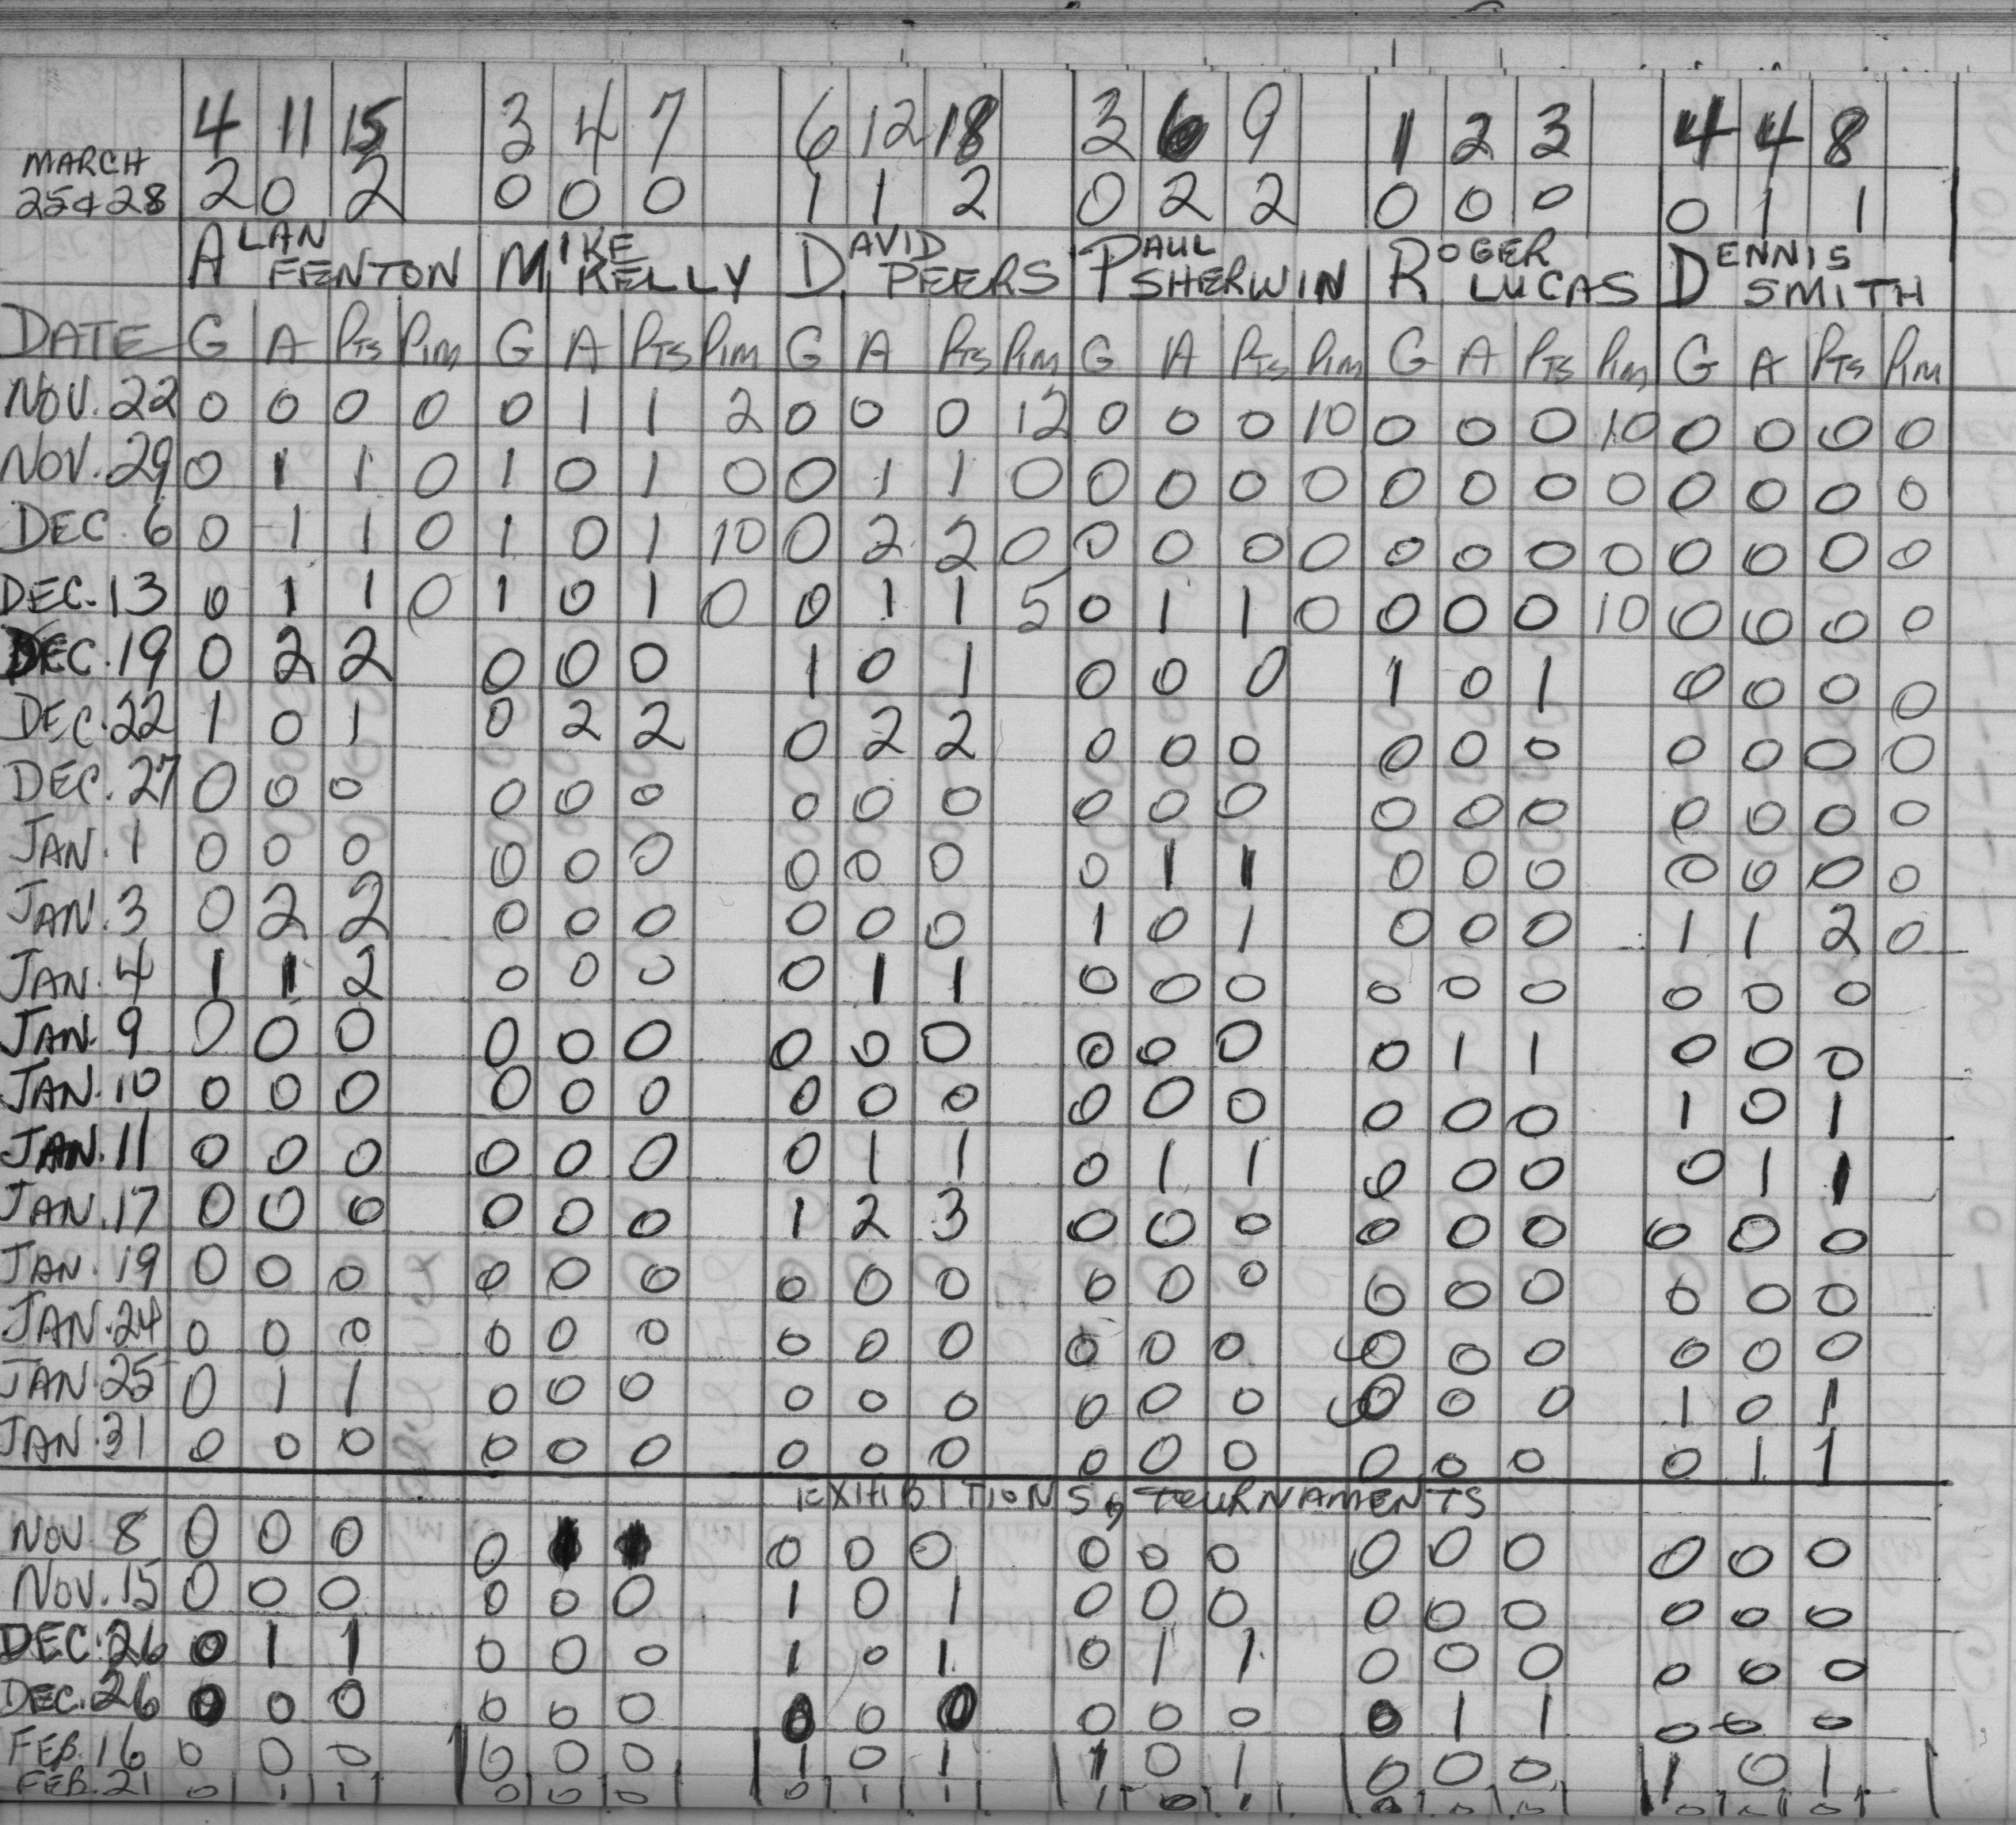 4 11 15 3 4 7 6 12 18 3 6 9 1 2 3 4 4 8
MARCH
25&28 2 0 2 0 0 0 1 1 2 0 2 2 0 0 0 0 1 1
ALAN FENTON MIKE KELLY DAVID PEERS PAUL SHERWIN ROGER LUCAS DENNIS SMITH
DATE G A PTS PIM G A PTS PIM G A PTS PIM G A PTS PIM G A PTS PIM G A PTS PIM
NOV. 22 0 0 0 0 0 1 1 2 0 0 0 12 0 0 0 10 0 0 0 10 0 0 0 0
NOV. 29 0 1 1 0 1 0 1 0 0 1 1 0 0 0 0 0 0 0 0 0 0 0 0 0
DEC. 6 0 1 1 0 1 0 1 10 0 2 2 0 0 0 0 0 0 0 0 0 0 0 0 0
DEC. 13 0 1 1 0 1 0 1 0 0 1 1 5 0 1 1 0 0 0 0 10 0 0 0 0
DEC. 19 0 2 2 0 0 0 1 0 1 0 0 0 1 0 1 0 0 0 0
DEC. 22 1 0 1 0 2 2 0 2 2 0 0 0 0 0 0 0 0 0 0
DEC. 27 0 0 0 0 0 0 0 0 0 0 0 0 0 0 0 0 0 0 0
JAN. 1 0 0 0 0 0 0 0 0 0 0 1 1 0 0 0 0 0 0 0
JAN. 3 0 2 2 0 0 0 0 0 0 1 0 1 0 0 0 1 1 2 0
JAN. 4 1 1 2 0 0 0 0 1 1 0 0 0 0 0 0 0 0 0
JAN. 9 0 0 0 0 0 0 0 0 0 0 0 0 0 1 1 0 0 0
JAN. 10 0 0 0 0 0 0 0 0 0 0 0 0 0 0 0 1 0 1
JAN. 11 0 0 0 0 0 0 0 1 1 0 1 1 0 0 0 0 1 1
JAN. 17 0 0 0 0 0 0 1 2 3 0 0 0 0 0 0 0 0 0
JAN. 19 0 0 0 0 0 0 0 0 0 0 0 0 0 0 0 0 0 0
JAN. 24 0 0 0 0 0 0 0 0 0 0 0 0 0 0 0 0 0 0
JAN. 25 0 1 1 0 0 0 0 0 0 0 0 0 0 0 0 1 0 1
JAN. 31 0 0 0 0 0 0 0 0 0 0 0 0 0 0 0 0 1 1
EXHIBITIONS, TOURNAMENTS
NOV 8 0 0 0 0 0 0 0 0 0 0 0 0 0 0 0 0
NOV. 15 0 0 0 0 0 0 1 0 1 0 0 0 0 0 0 0 0 0
DEC. 26 0 1 1 0 0 0 1 0 1 0 1 1 0 0 0 0 0 0
DEC. 26 0 0 0 0 0 0 0 0 0 0 0 0 0 1 1 0 0 0
FEB. 16 0 0 0 0 0 0 1 0 1 1 0 1 0 0 0 1 0 1
FEB. 21 0 1 1 0 0 0 0 1 1 1 0 1 0 0 0